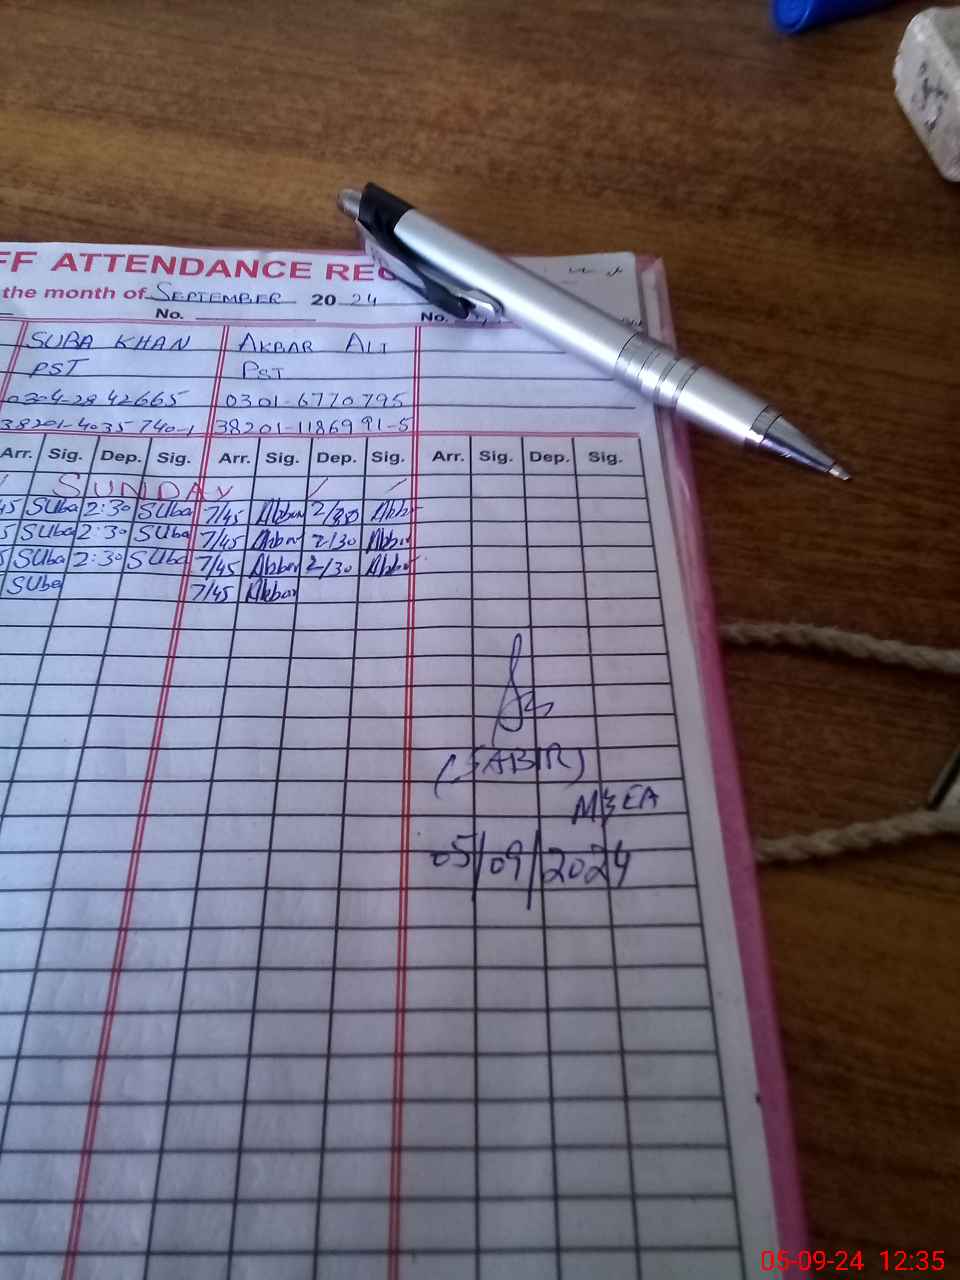 FF ATTENDANCE REG
the month of SEPTEMBER 20 24
No. No.
SUBA KHAN AKBAR ALI
PST PST
0304-28 42665 0301-6770795
38201-4035740-1 38201-1186991-5
Arr. Sig. Dep. Sig. Arr. Sig. Dep. Sig. Arr. Sig. Dep. Sig.
SUNDAY
45 SUba 2:30 SUba 7/45 Akbar 2/30 Akbar
5 SUba 2:30 SUba 7/45 Akbar 2/30 Akbar
5 SUba 2:30 SUba 7/45 Akbar 2/30 Akbar
SUba 7/45 Akbar
(SABIR)
MEA
05/09/2024
05-09-24 12:35